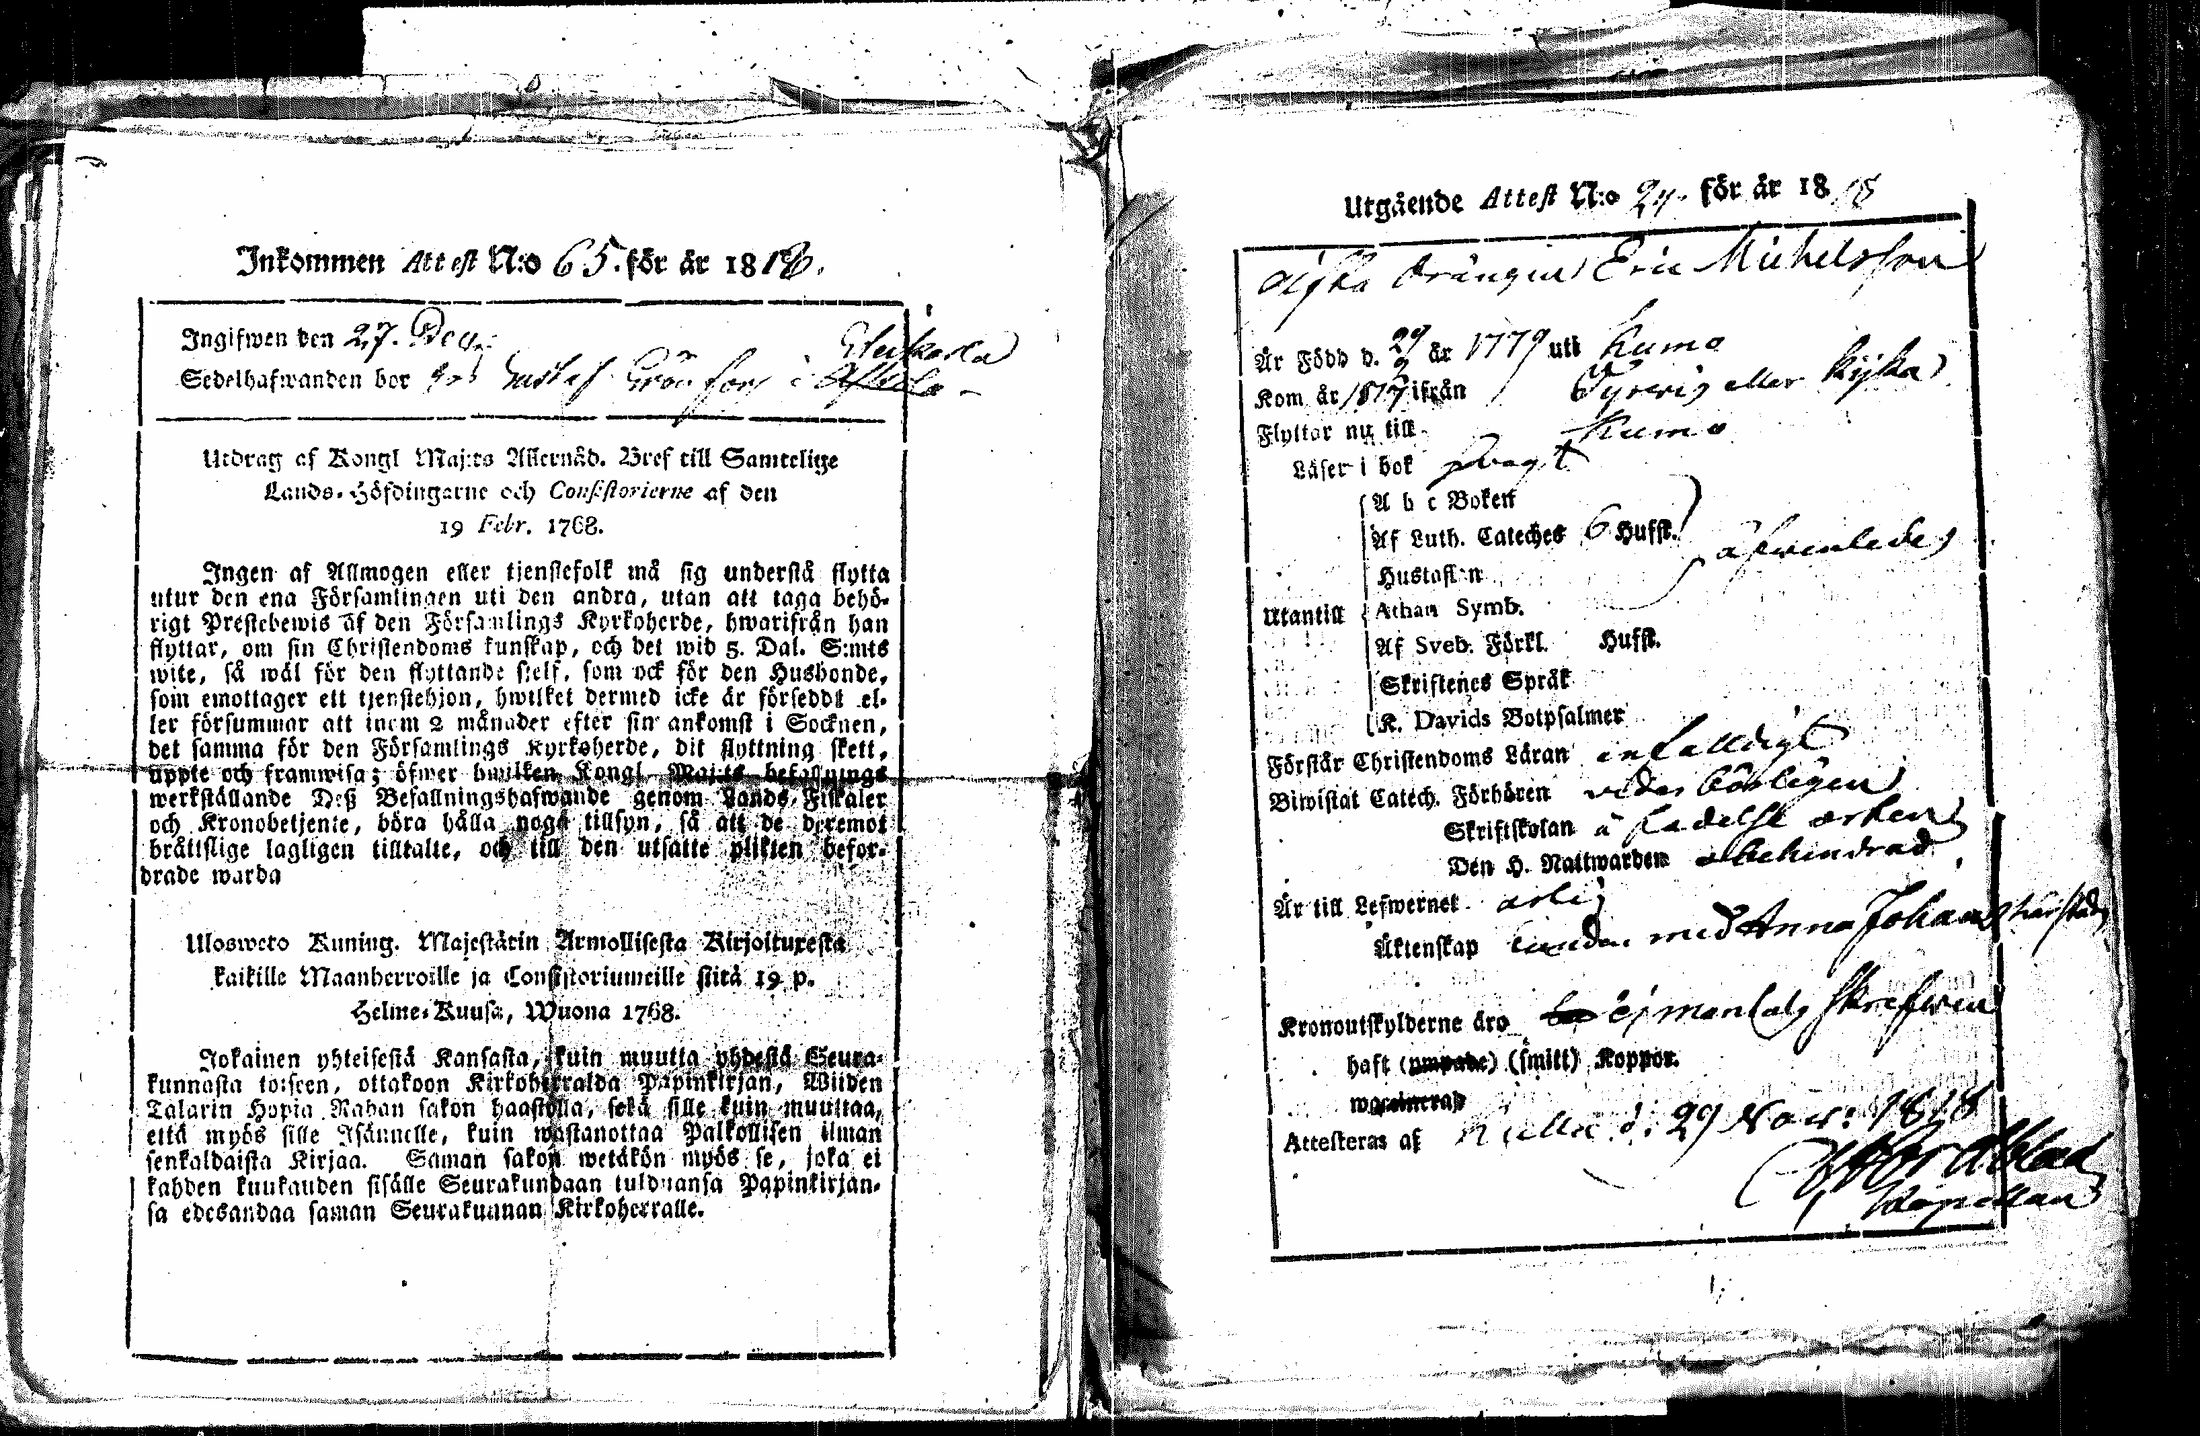 Inkommen Attest N:o 65. för år 1818.
Ingifwen den 27. Dec.
Sedelhafwanden bor hos Gustaf Grönfors i
Utdrag af Kongl Maj:ts Allernåd. Bref till Samtelige
Lands-Höfdingarne och Consistorierne af den
19 Febr. 1768.
Ingen af Allmogen eller tjenstefolk må sig understå flytta
utur den ena Församlingen uti den andra, utan att taga behö-
rigt Prestebewis af den Församlings Kyrkoherde, hwarifrån han
flyttar, om sin Christendoms kunskap, och det wid 5. Dal. S:mts
wite, så wäl för den flyttande sielf, som ock för den Husbonde,
som emottager ett tjenstehjon, hwilket dermed icke är förseddt el-
ler försummar att inom 2 månader efter sin ankomst i Socknen,
det samma för den Församlings Kyrkoherde, dit flyttning skett,
uppte och framwisa; öfwer hwilken Kongl Maj:ts befallnings
werkställande Deß Befallningshafwande genom Lands-Fiskaler
och Kronobetjente, böra hålla noga tillsyn, så att de deremot
bråttslige lagligen tilltalte, och till den utsatte plikten befor-
drade warda
Ulosweto Kuning. Majestätin Armollisesta Kirjoituxesta
kaikille Maanherroille ja Consistoriumeille siitä 19 p.
Helme-Kuusa, Wuona 1768.
Jokainen yhteisestä Kansasta, kuin muutta yhdestä Seura-
kunnasta toiseen, ottakoon Kirkoherralda Papinkirjan, Wiiden
Talarin Hopia Rahan sakon haastolla, sekä sille kuin muuttaa,
että myös sille Isännelle, kuin wastanottaa Palkollisen ilman
senkaldaista Kirjaa. Saman sakon wetäkön myös se, joka ei
kahden kuukauden sisälle Seurakundaan tulduansa Papinkirjan-
sa edesandaa saman Seurakunnan Kirkoherralle.
Utgående Attest N:o 24. för år 1818
Drängen Eric Michelsson
Är Född d. 29/2 år 1779 uti Kumo
Kom år 1817 ifrån Tyrwis eller Kijka
Flyttar nu till Kumo
Läser i bok swagt
A b c Boken
Af Luth. Cateches 6 Hufst. äfwenledes
Hustaflan
Utantill Athan Symb.
Af Sveb. Förkl. Hufst.
Skriftenes Språk
K. Davids Botpsalmer
Förstår Christendoms Läran enfalldigt
Biwistat Catech. Förhören wederbörligen
Skriftskolan å fädelse orten
Den H. Nattwarden obehindrad
Är till Lefwernet ärlig
Äktenskap bunden med Anna Johans
Kronoutskylderne äro ej mantals skrefwen
haft (ympade) (smitt) Koppor.
waccinerad
Attesteras af d. 29 Nov: 1818
Kapellan